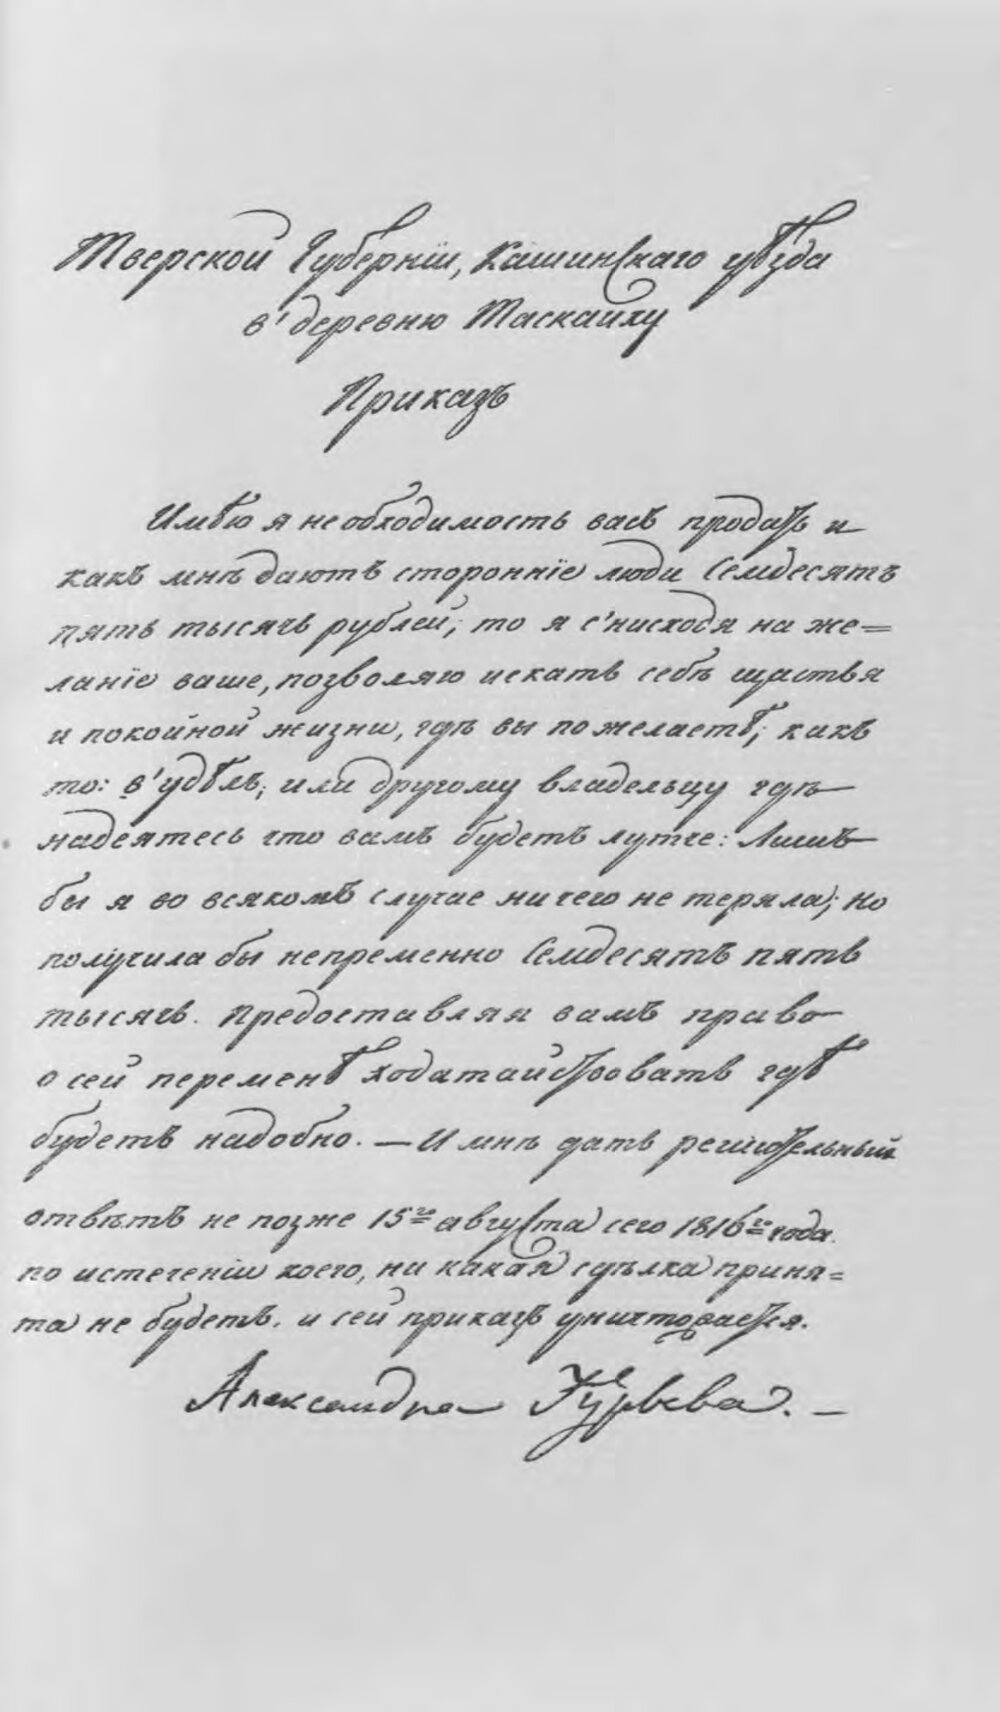 Тверской Губерніи, Кашинскаго уѣзда
в' деревню Маскаиху
Приказъ
Имѣю я необходимость васъ продать и
какъ мнѣ даютъ сторонніе люди Семдесятъ
пять тысячь рублей, то я с'нисходя на же=
ланіе ваше, позволяю искать себѣ щастья
и покойной жизни, гдѣ вы пожелаетѣ, какъ
то: в'удѣлъ, или другому владельцу гдѣ
надеятесь что вамъ будетъ лутче: Лишъ
бы я во всякомъ случае ничего не теряла, но
получила бы непременно Семдесятъ пять
тысячь. Предоставляя вамъ право
о сей переменѣ ходатайствовать гдѣ
будетъ надобно. — И мнѣ дать решительный
отвѣтъ не позже 15го августа сего 1816го года
по истеченіи коего, ни какая сдѣлка приня=
та не будетъ. и сей приказъ уничтожается.
Александра Гурьева. —